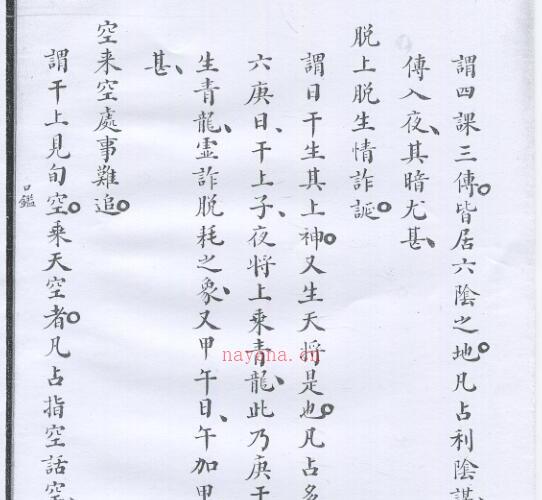 謂四課三傳。皆居六陰之地。凡占利陰謀
傳入夜、其暗尤甚、
脱上脱生情詐誕。
謂日干生其上神。又生天将是也。凡占多
六庚日、干上子、夜将上乘青龍、此乃庚干
生青龍、虚詐脱耗之象、又甲午日、午加甲
甚、
空来空處事難追。
謂干上見旬空。乘天空者。凡占指空話空、
口鑑
nayona.cn